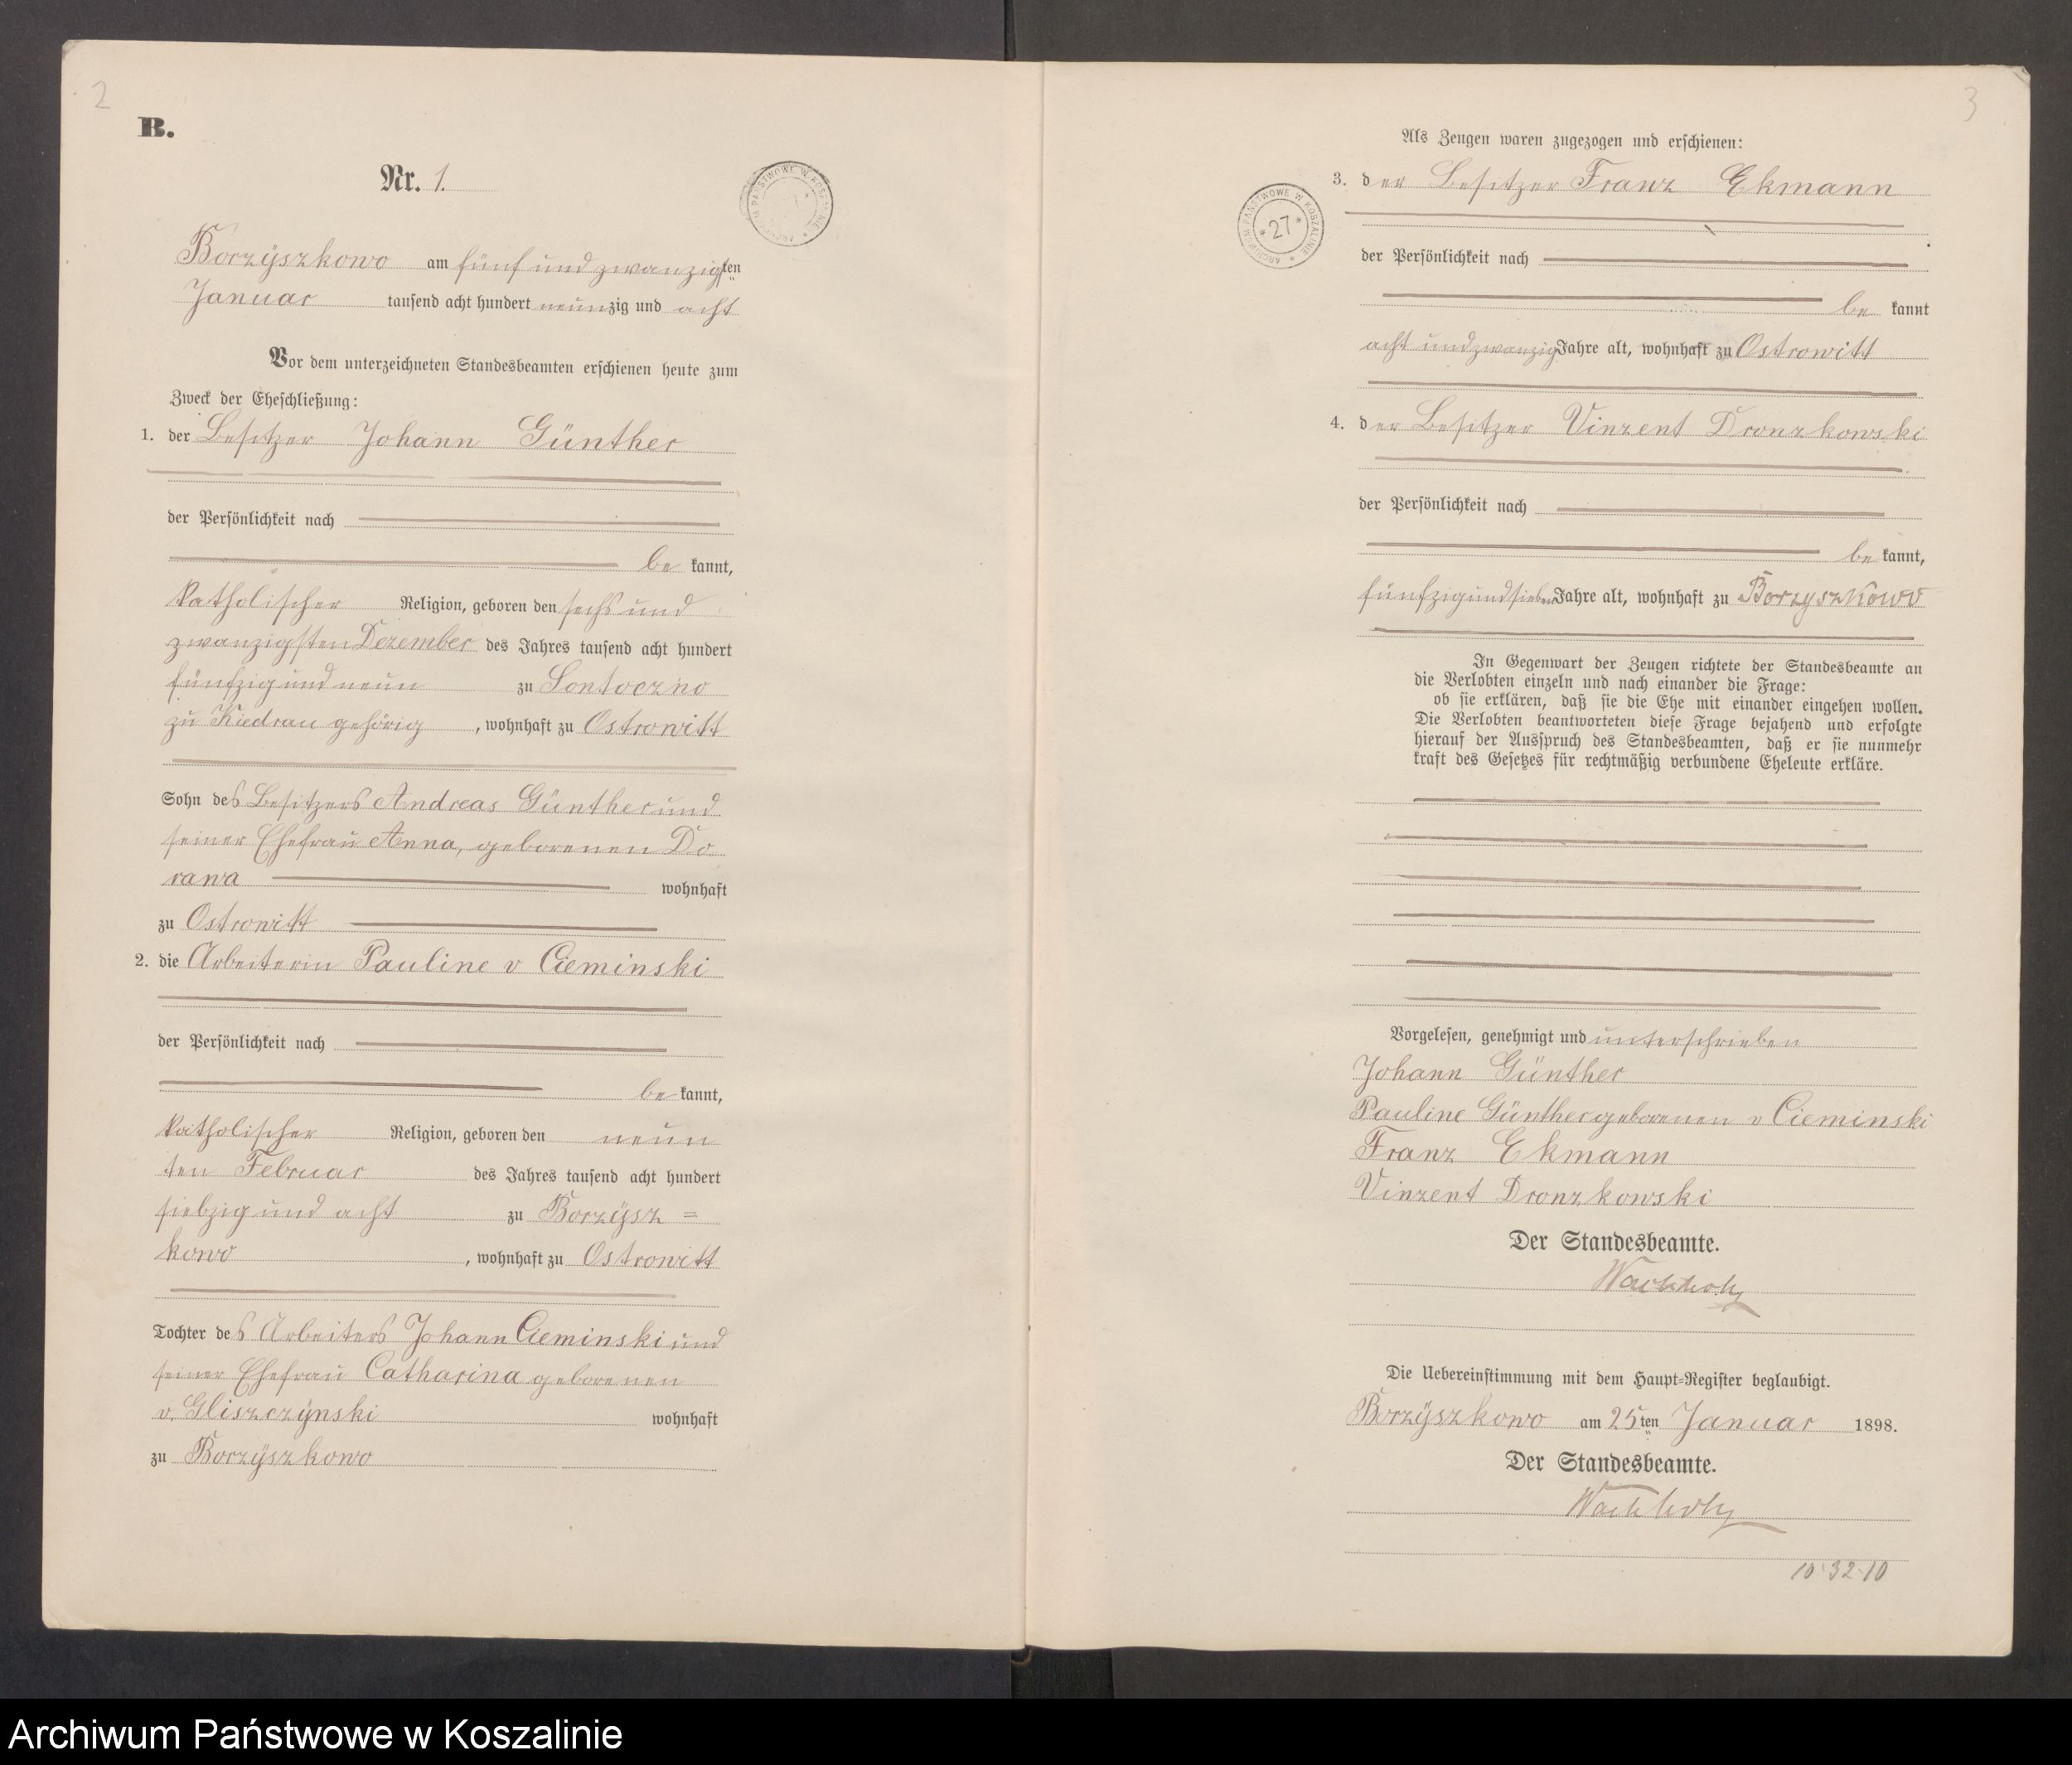 2
B.
Nr. 1.
Borzÿszkowo am fünf und zwanzigsten
Januar tausend acht hundert neunzig und acht
Vor dem unterzeichneten Standesbeamten erschienen heute zum
Zweck der Eheschließung:
1. der Besitzer Johann Günther
der Persönlichkeit nach
be kannt,
katholischer Religion, geboren den sechs und
zwanzigsten Dezember des Jahres tausend acht hundert
fünfzig und neun zu Sontoczno
zu Kiedrau gehörig, wohnhaft zu Ostrowitt
Sohn des Besitzers Andreas Günther und
seiner Ehefrau Anna, geborenen Do
rawa wohnhaft
zu Ostrowitt
2. die Arbeiterin Pauline v Cieminski
der Persönlichkeit nach
be kannt,
katholischer Religion, geboren den neun
ten Februar des Jahres tausend acht hundert
siebzig und acht zu Borzÿsz=
kowo, wohnhaft zu Ostrowitt
Tochter des Arbeiters Johann Cieminski und
seiner Ehefrau Catharina geborenen
v. Gliszczÿnski wohnhaft
zu Borzÿszkowo
3
Als Zeugen waren zugezogen und erschienen:
3. der Besitzer Franz Ekmann
ARCHIWUM PAŃSTWOWE W KOSZALINIE * 27 *
der Persönlichkeit nach
be kannt
acht und zwanzig Jahre alt, wohnhaft zu Ostrowitt
4. der Besitzer Vinzent Dronzkowski
der Persönlichkeit nach
be kannt,
fünfzig und sieben Jahre alt, wohnhaft zu Borzyszkowo
In Gegenwart der Zeugen richtete der Standesbeamte an
die Verlobten einzeln und nach einander die Frage:
ob sie erklären, daß sie die Ehe mit einander eingehen wollen.
Die Verlobten beantworteten diese Frage bejahend und erfolgte
hierauf der Ausspruch des Standesbeamten, daß er sie nunmehr
kraft des Gesetzes für rechtmäßig verbundene Eheleute erkläre.
Vorgelesen, genehmigt und unterschrieben
Johann Günther
Pauline Günther geborenen v Cieminski
Franz Ekmann
Vinzent Dronzkowski
Der Standesbeamte.
Wachholz
Die Uebereinstimmung mit dem Haupt-Register beglaubigt.
Borzÿszkowo am 25ten Januar 1898.
Der Standesbeamte.
Wachholz
10·32·10
Archiwum Państwowe w Koszalinie